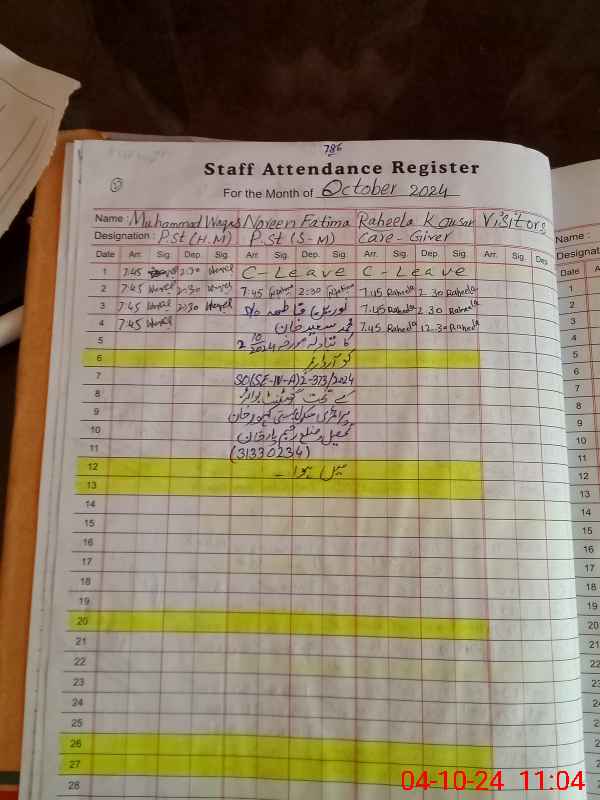 786
Staff Attendance Register
For the Month of October 2024
Name: Muhammad Waqas Noreen Fatima Raheela Kausar Visitors
Designation: P.St (H.M) P.St (S-M) Care-Giver
Date Arr. Sig. Dep. Sig. Arr. Sig. Dep. Sig. Arr. Sig. Dep. Sig. Arr. Sig. Dep.
1 7:45 2:30 C-Leave C-Leave
2 7:45 2:30 7:45 2:30 7:45 Raheela 2.30 Raheela
3 7:45 2:30 نورین فاطمہ 7:45 Raheela 2.30 Raheela
4 7:45 محمد سعید خان 7.45 Raheela 12.30 Raheela
5 کا تبادلہ مورخہ 2/10/2024
6 کو آرڈر نمبر
7 SO(SE-IV-A)2-373/2024
8 کے تحت گورنمنٹ بوائز
9 پرائمری سکول بستی
10 تحصیل و ضلع رحیم یار خان
11 (31330234)
12 میں ہوا ۔
13
14
15
16
17
18
19
20
21
22
23
24
25
26
27
28
Name :
Designat
Date A
1
2
3
4
5
6
7
8
9
10
11
12
13
14
15
16
17
18
19
20
21
22
23
24
25
26
27
04-10-24 11:04